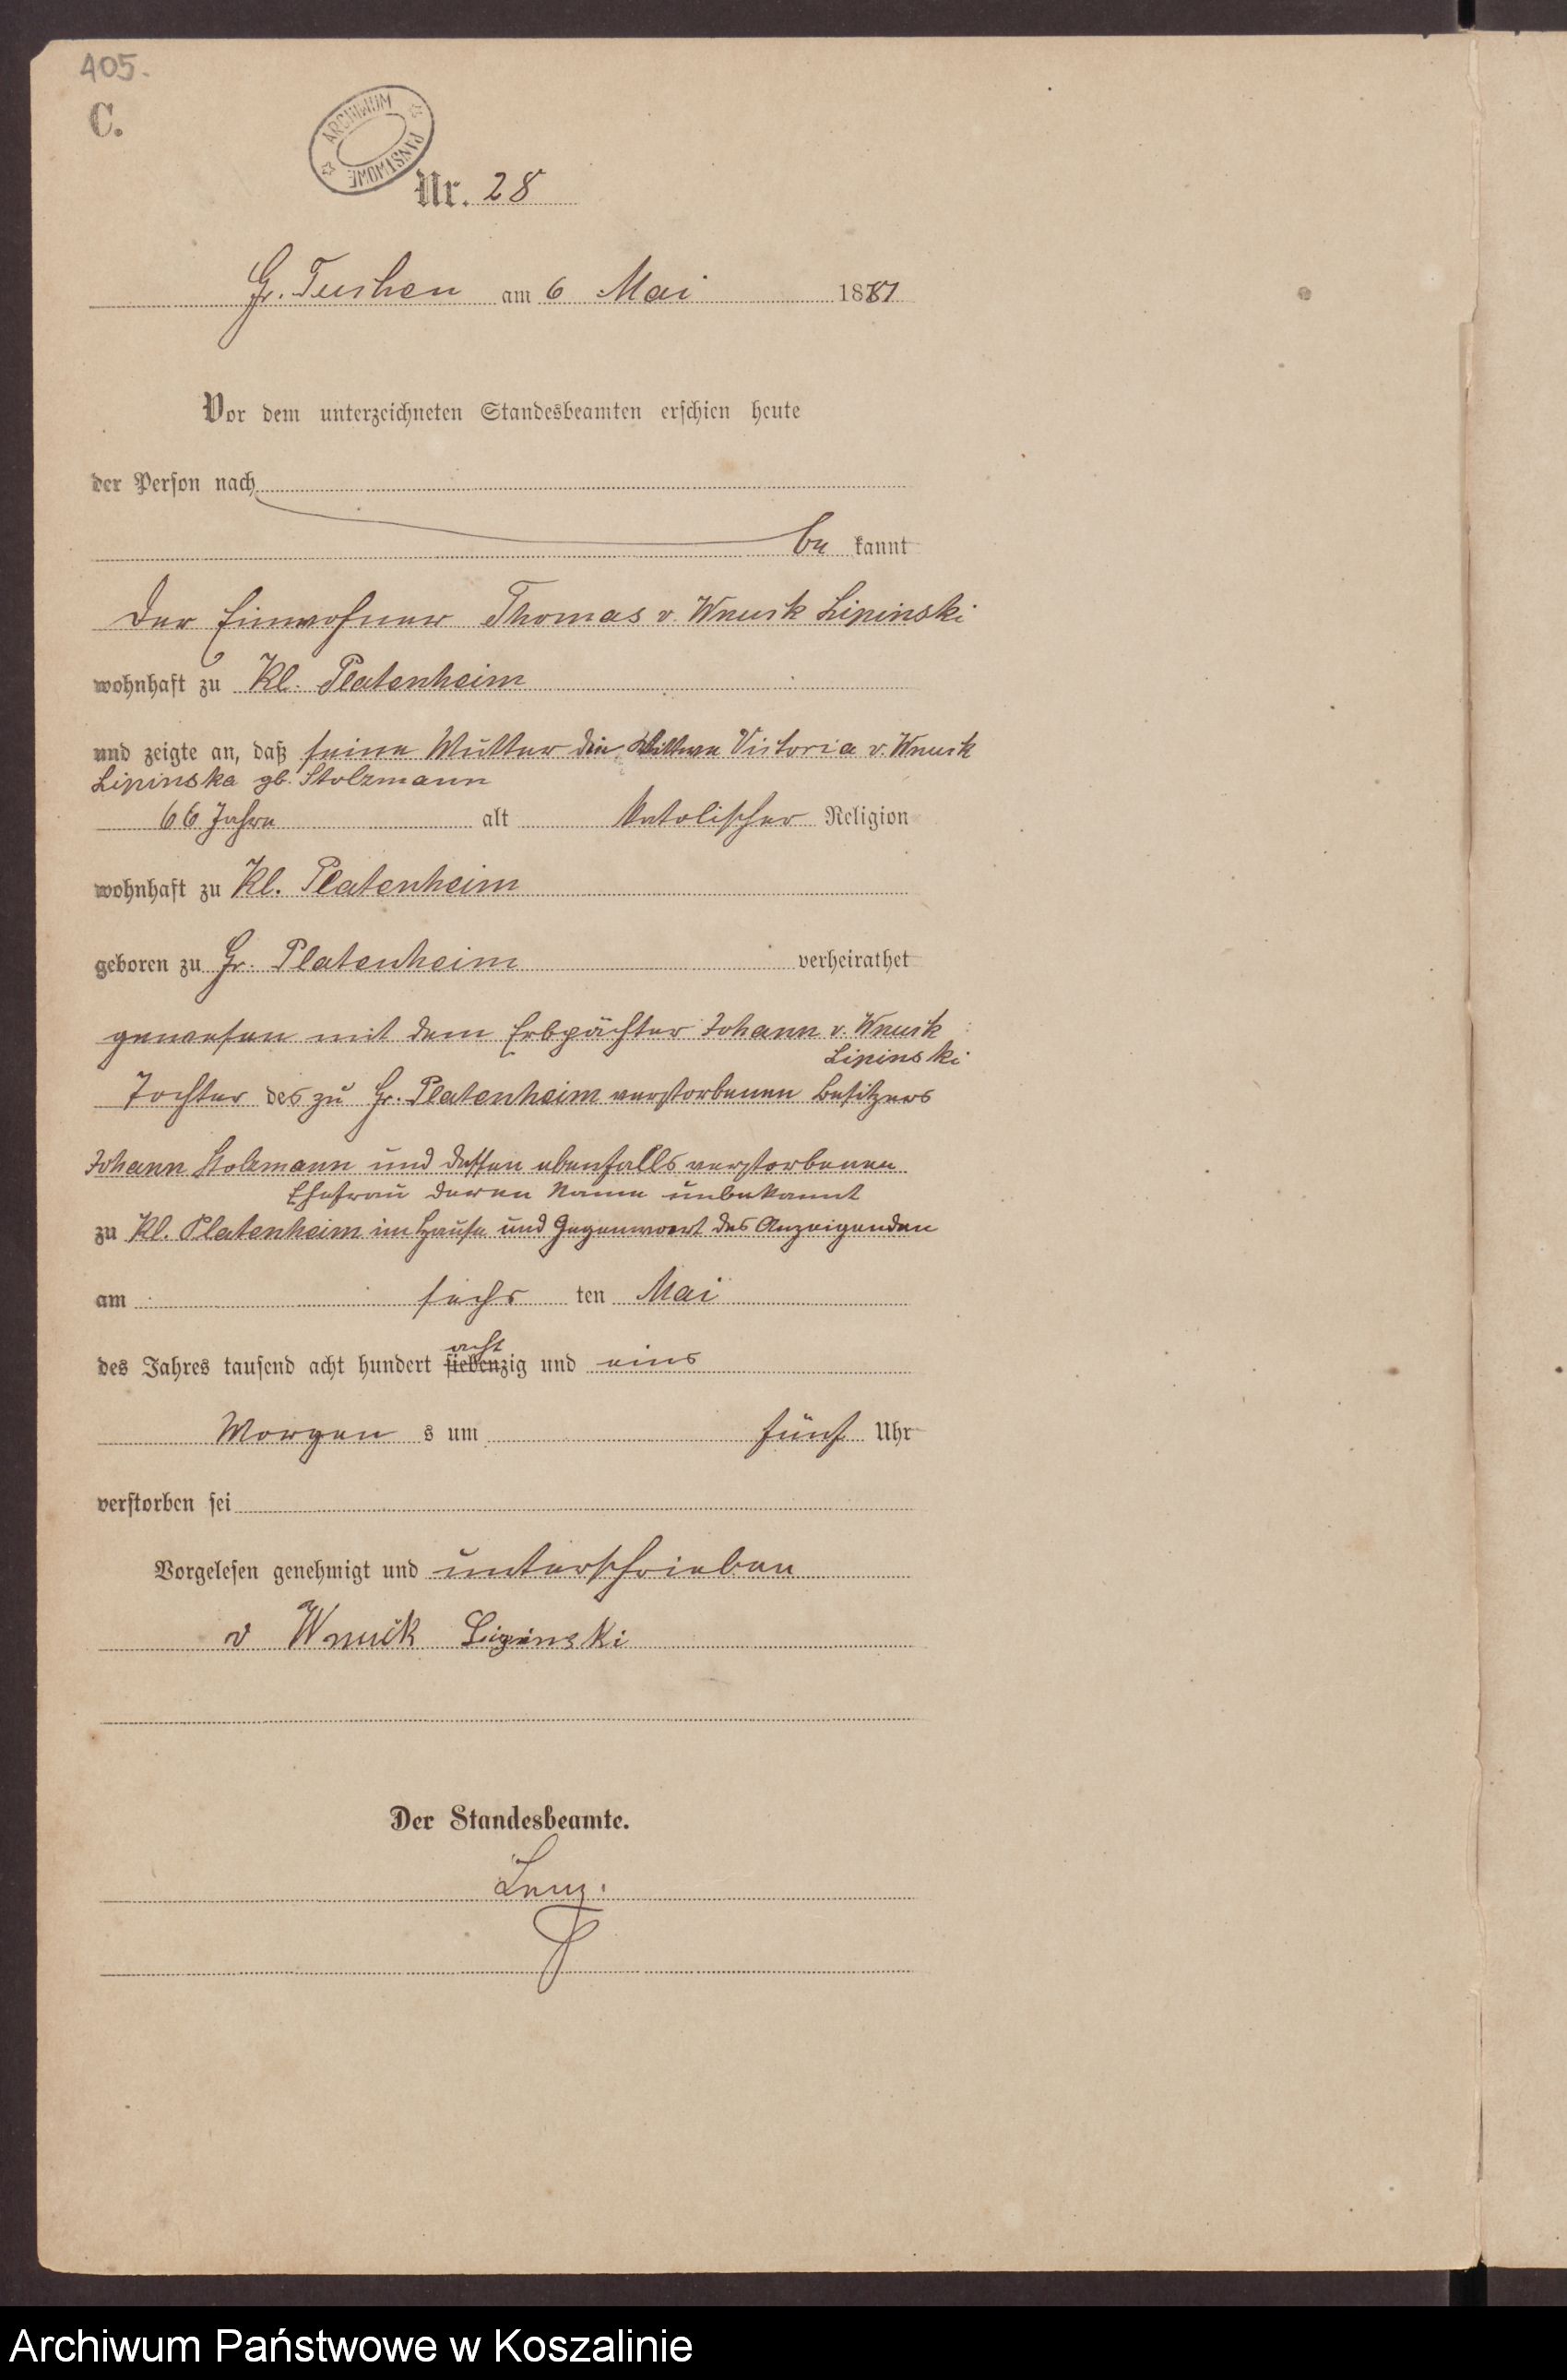 405.
C.
ARCHIWUM PAŃSTWOWE
Nr. 28
Gr. Tuchen am 6 Mai 1881
Vor dem unterzeichneten Standesbeamten erschien heute
der Person nach
be kannt
Der Einwohner Thomas v. Wnuck Lipinski
wohnhaft zu Kl. Platenheim
und zeigte an, daß seine Mutter die Wittwe Victoria v. Wnuck
Lipinska gb. Stolzmann
66 Jahre alt katolischer Religion
wohnhaft zu Kl. Platenheim
geboren zu Gr. Platenheim verheirathet
gewesen mit dem Erbpächter Johann v. Wnuck
Lipinski
Tochter des zu Gr. Platenheim verstorbenen Besitzers
Johann Stolzmann und dessen ebenfalls verstorbenen
Ehefrau deren Name unbekannt
zu Kl. Platenheim im Hause und Gegenwart des Anzeigenden
am sechs ten Mai
acht
des Jahres tausend acht hundert siebenzig und eins
Morgen s um fünf Uhr
verstorben sei
Vorgelesen genehmigt und unterschrieben
v Wnuck Lipinski
Der Standesbeamte.
Lenz.
Archiwum Państwowe w Koszalinie